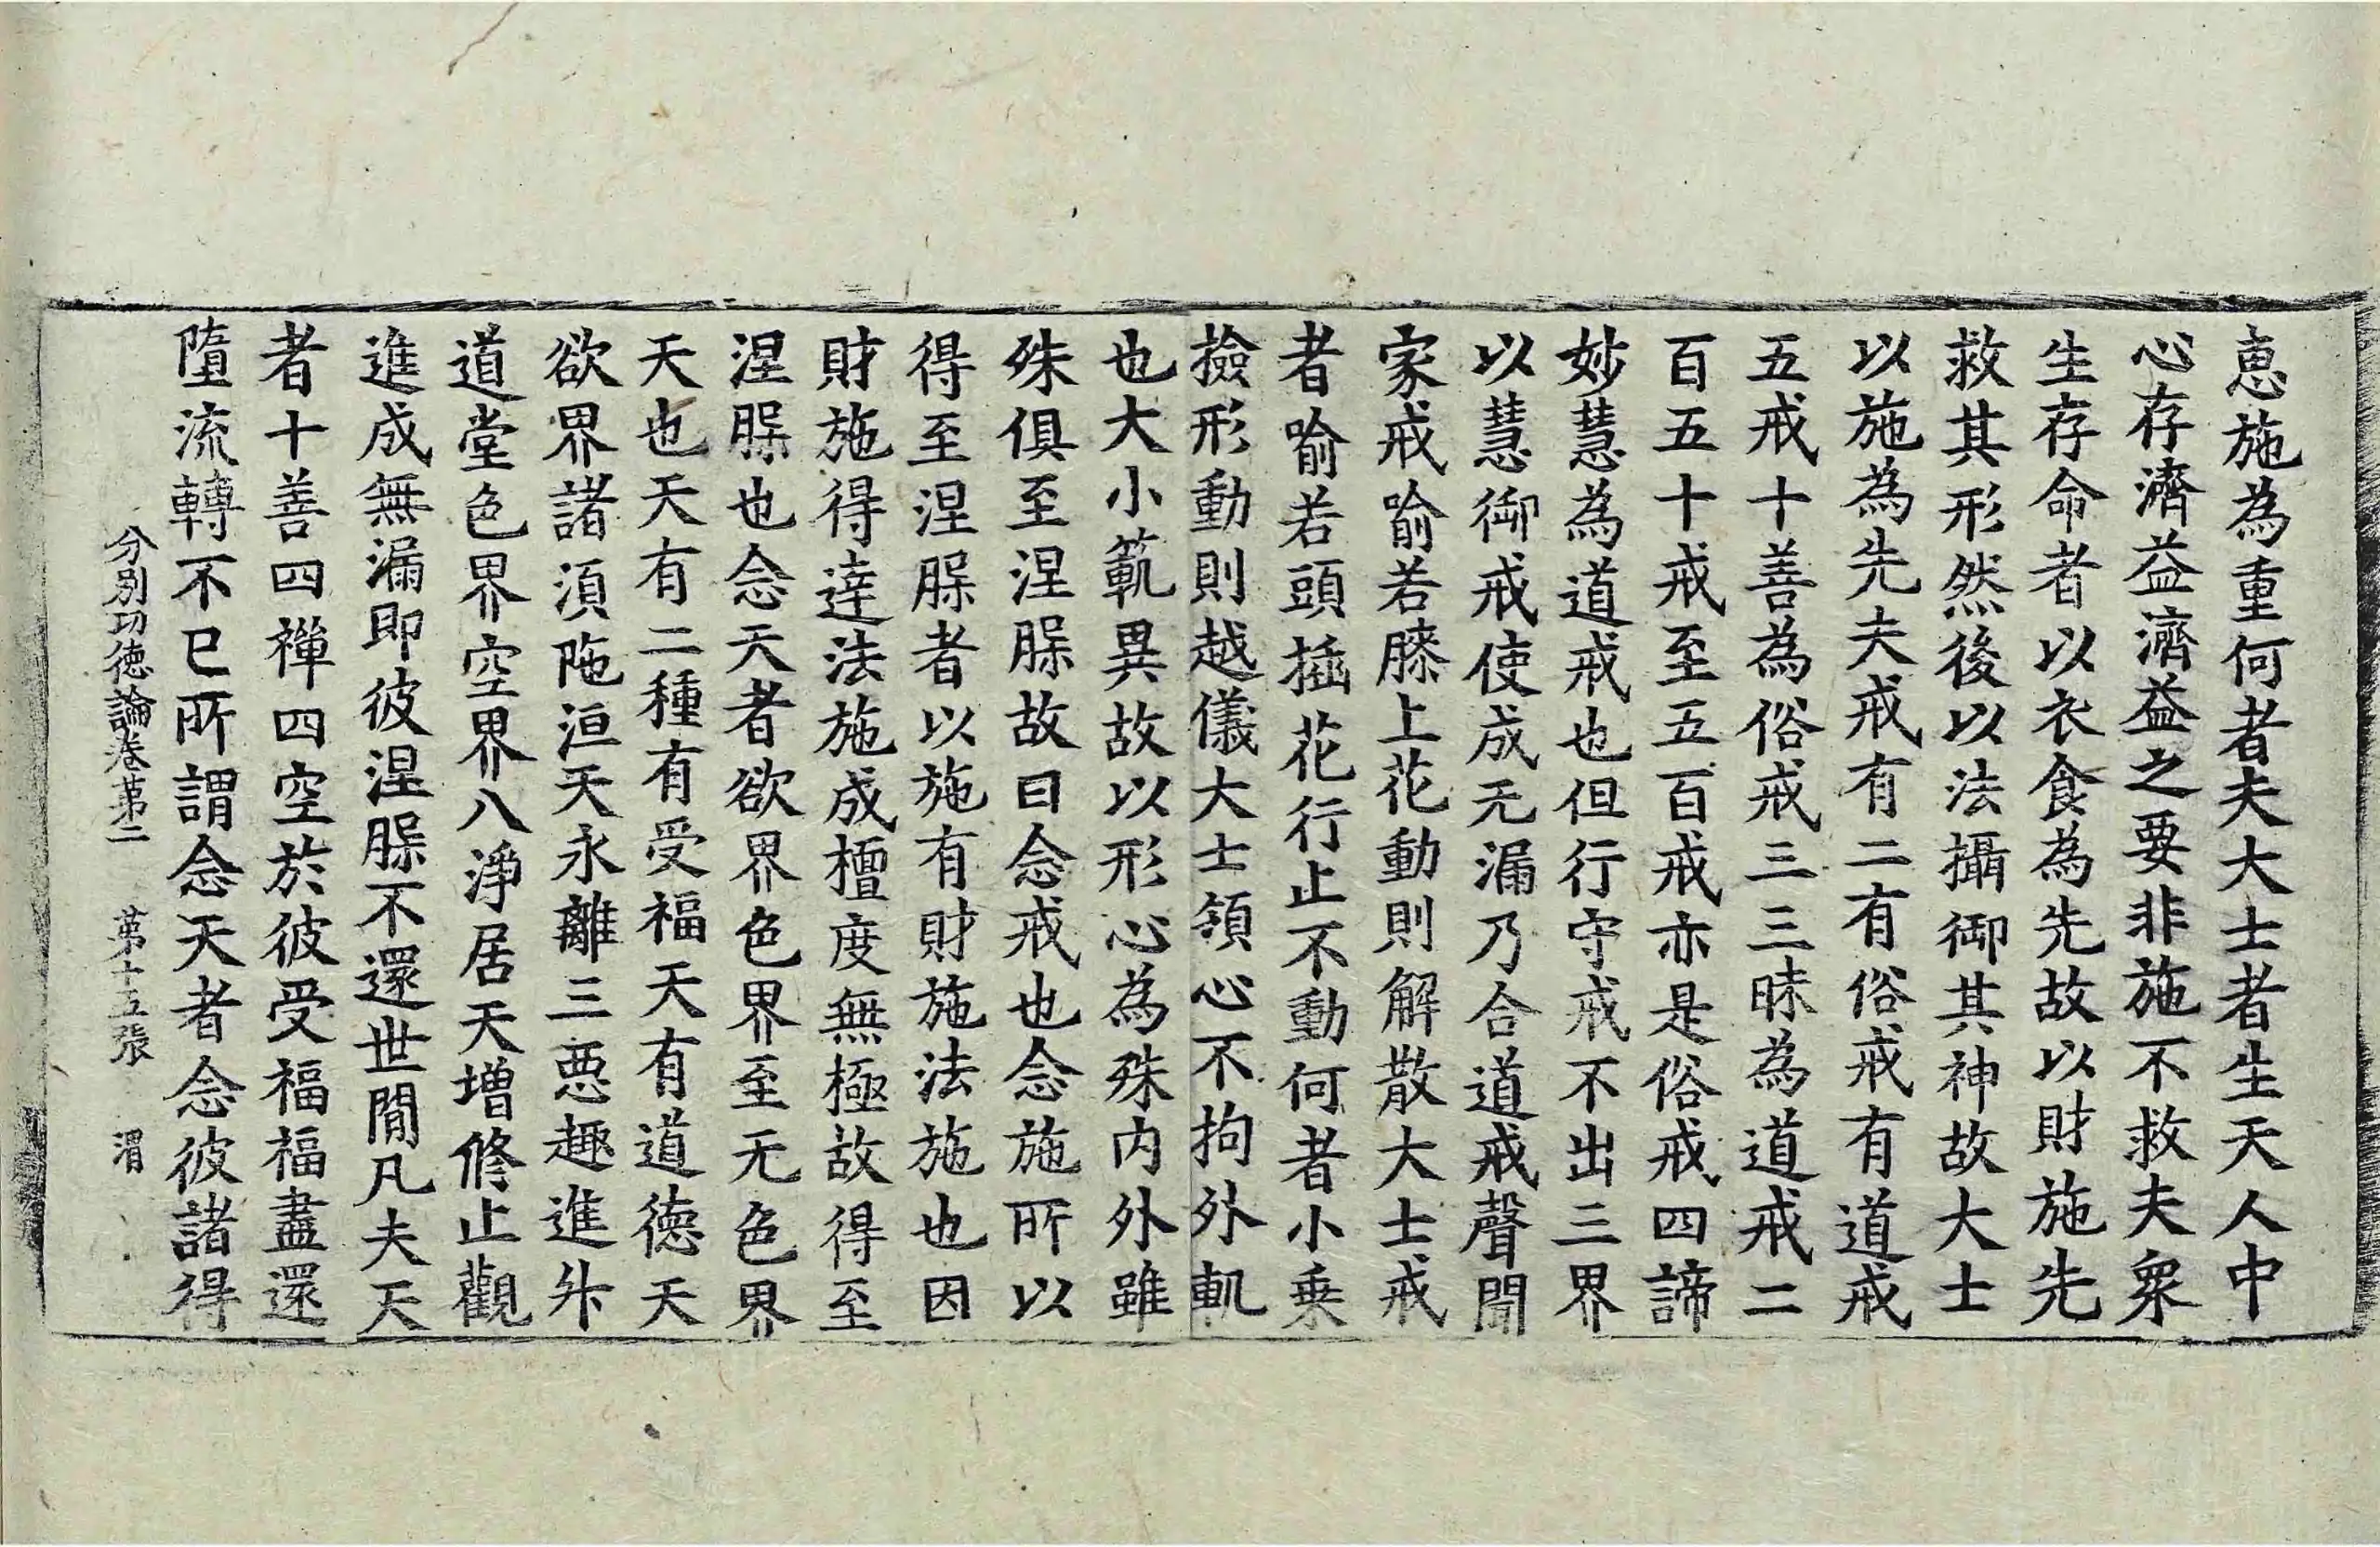 恵施為重何者夫大士者生天人中
心存濟益濟益之要非施不救夫衆
生存命者以衣食為先故以財施先
救其形然後以法攝御其神故大士
以施為先夫戒有二有俗戒有道戒
五戒十善為俗戒三三昧為道戒二
百五十戒至五百戒亦是俗戒四諦
妙慧為道戒也但行守戒不出三界
以慧御戒使成无漏乃合道戒聲聞
家戒喻若膝上花動則解散大士戒
者喻若頭插花行止不動何者小乗
撿形動則越儀大士領心不拘外軌
也大小範異故以形心為殊内外雖
殊俱至涅槃故曰念戒也念施所以
得至涅槃者以施有財施法施也因
財施得達法施成檀度無極故得至
涅槃也念天者欲界色界至无色界
天也天有二種有受福天有道徳天
欲界諸須陁洹天永離三悪趣進升
道堂色界空界八淨居天増修止觀
進成無漏即彼涅槃不還世閒凡夫天
者十善四禪四空於彼受福福盡還
墮流轉不已所謂念天者念彼諸得
分别功徳論卷第二　第十五張　渭